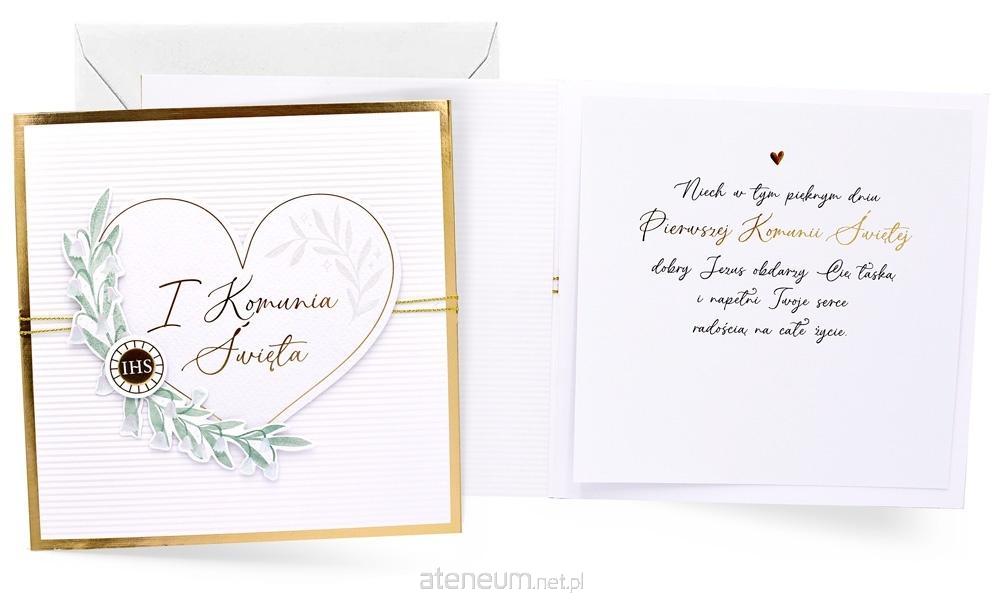 I Komunia
Święta
IHS
Niech w tym pięknym dniu
Pierwszej Komunii Świętej
dobry Jezus obdarzy Cię łaską
i napełni Twoje serce
radością na całe życie.
ateneum.net.pl